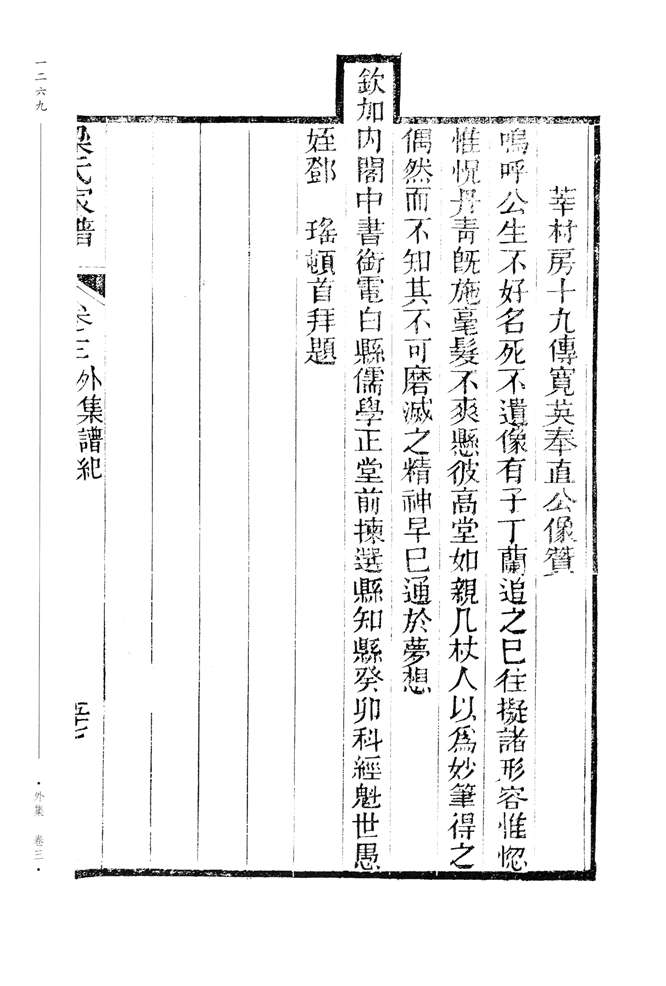 莘村房十九傳寬英奉直公像贊
嗚呼公生不好名死不遺像有子丁蘭追之已往擬諸形容惟惚
惟怳丹靑旣施毫髮不爽懸彼高堂如親几杖人以爲妙筆得之
偶然而不知其不可磨滅之精神早已通於夢想
欽加內閣中書銜電白縣儒學正堂前揀選縣知縣癸卯科經魁世愚
姪鄧　瑤頓首拜題
梁氏家譜　卷三外集譜紀　五十七
一二六九
·外集　卷三·